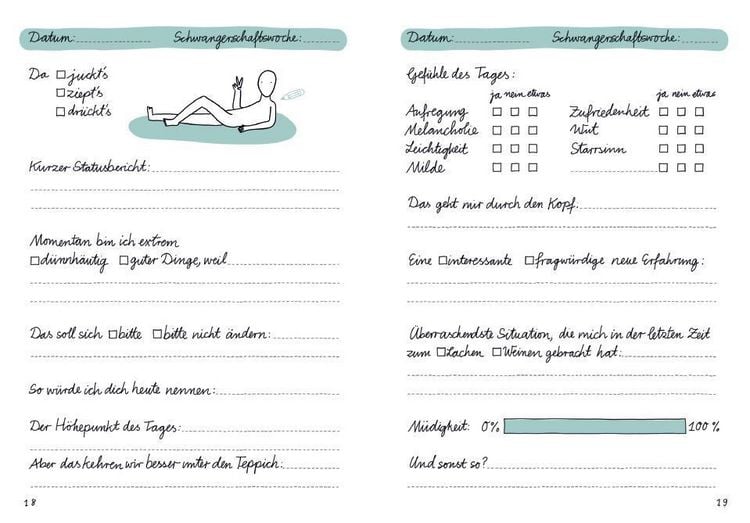 Datum: Schwangerschaftswoche:
Da □ juckt's
□ ziept's
□ drückt's
Kurzer Statusbericht:
Momentan bin ich extrem
□ dünnhäutig □ guter Dinge, weil
Das soll sich □ bitte □ bitte nicht ändern:
So würde ich dich heute nennen:
Der Höhepunkt des Tages:
Aber das kehren wir besser unter den Teppich:
18
Datum: Schwangerschaftswoche:
Gefühle des Tages:
ja nein etwas ja nein etwas
Aufregung □ □ □ Zufriedenheit □ □ □
Melancholie □ □ □ Wut □ □ □
Leichtigkeit □ □ □ Starrsinn □ □ □
Milde □ □ □ □ □ □
Das geht mir durch den Kopf:
Eine □ interessante □ fragwürdige neue Erfahrung:
Überraschendste Situation, die mich in der letzten Zeit
zum □ Lachen □ Weinen gebracht hat:
Müdigkeit: 0% 100%
Und sonst so?
19